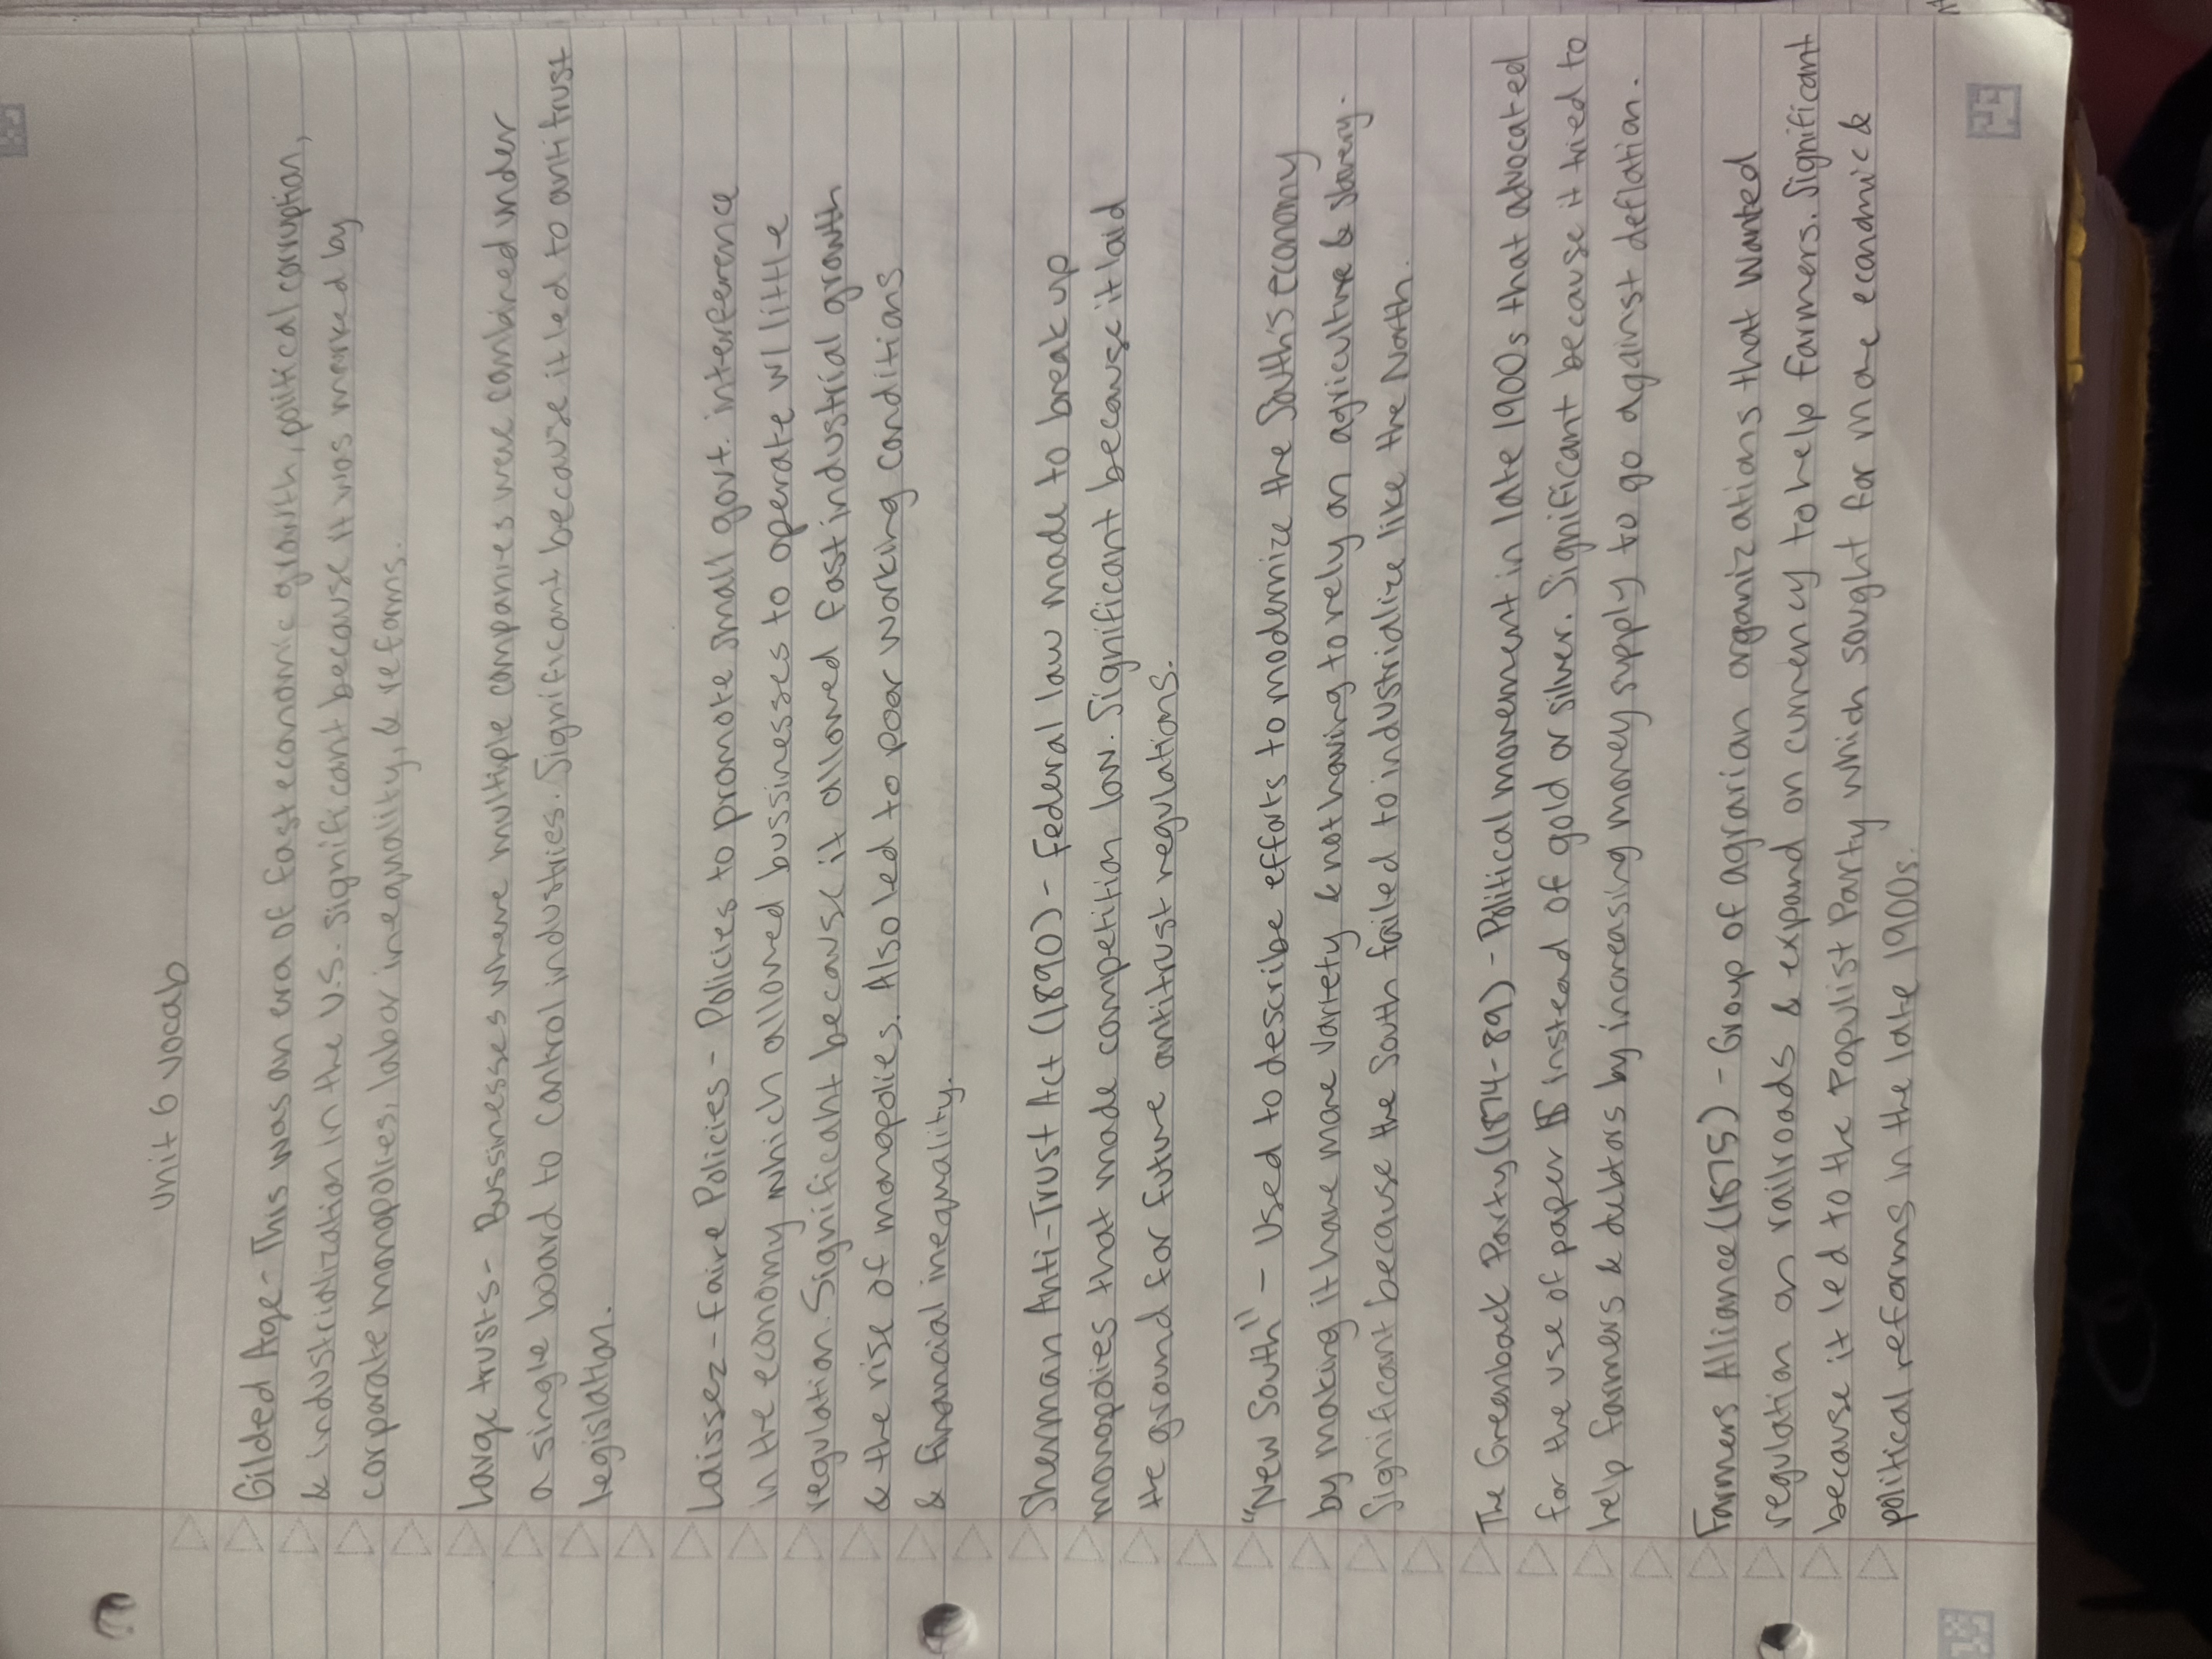 Unit 6 vocab
Gilded Age - This was an era of fast economic growth, political corruption,
& industrialization in the U.S. Significant because it was marked by
corporate monopolies, labor inequality, & reforms.
Large trusts - Bussinesses where multiple companies were combined under
a single board to control industries. Significant because it led to antitrust
legislation.
Laissez-faire Policies - Policies to promote small govt. interference
in the economy which allowed bussinesses to operate w/ little
regulation. Significant because it allowed fast industrial growth
& the rise of monopolies. Also led to poor working conditions
& financial inequality.
Sherman Anti-Trust Act (1890) - Federal law made to break up
monopolies that made competition low. Significant because it laid
the ground for future antitrust regulations.
"New South" - Used to describe efforts to modernize the South's economy
by making it have more variety & not having to rely on agriculture & slavery.
Significant because the South failed to industrialize like the North.
The Greenback Party (1874-89) - Political movement in late 1900s that advocated
for the use of paper $ instead of gold or silver. Significant because it tried to
help farmers & debtors by increasing money supply to go against deflation.
Farmers Alliance (1875) - Group of agrarian organizations that wanted
regulation on railroads & expand on currency to help farmers. Significant
because it led to the Populist Party which sought for more economic &
political reforms in the late 1900s.